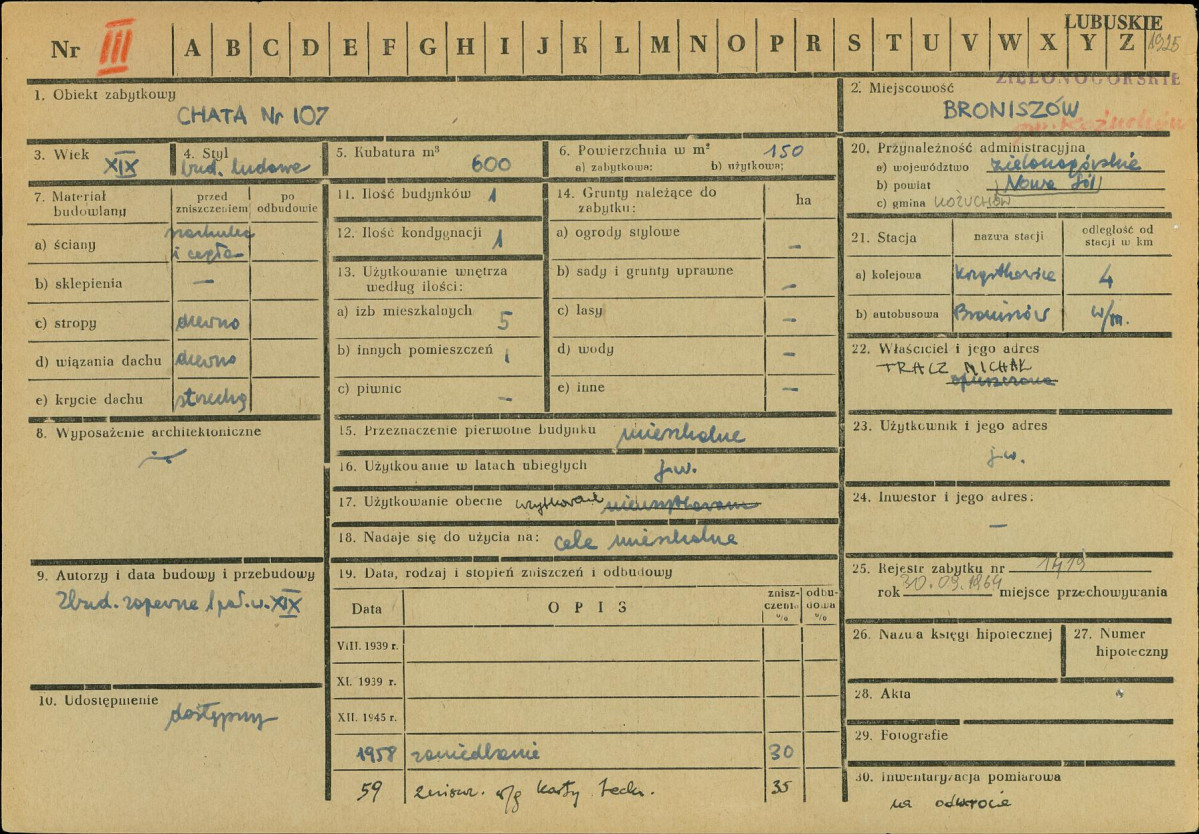 LUBUSKIE
Nr III A B C D E F G H I J K L M N O P R S T U V W X Y Z 1925
ZIELONOGÓRSKIE
1. Obiekt zabytkowy
CHATA Nr 107
2. Miejscowość
BRONISZÓW
3. Wiek XIX
4. Styl bud. ludowe
5. Kubatura m³ 600
6. Powierzchnia w m² 150
a) zabytkowa: b) użytkowa:
7. Materiał budowlany
przed zniszczeniem
po odbudowie
a) ściany
i cegła
b) sklepienia —
c) stropy drewno
d) wiązania dachu drewno
e) krycie dachu strzecha
8. Wyposażenie architektoniczne
9. Autorzy i data budowy i przebudowy
Zbud. zapewne 1 poł. w. XIX
10. Udostępnienie
dostępny
11. Ilość budynków 1
12. Ilość kondygnacji 1
13. Użytkowanie wnętrza
według ilości:
a) izb mieszkalnych 5
b) innych pomieszczeń 1
c) piwnic —
14. Grunty należące do
zabytku:
ha
a) ogrody stylowe —
b) sady i grunty uprawne —
c) lasy —
d) wody —
e) inne —
15. Przeznaczenie pierwotne budynku mieszkalne
16. Użytkowanie w latach ubiegłych j.w.
17. Użytkowanie obecne użytkowane nieużytkowane
18. Nadaje się do użycia na: cele mieszkalne
19. Data, rodzaj i stopień zniszczeń i odbudowy
Data OPIS zniszczenia % odbudowa %
VIII. 1939 r.
XI. 1939 r.
XII. 1945 r.
1958 zaniedbanie 30
59 zniszcz. w/g karty techn. 35
20. Przynależność administracyjna
a) województwo zielonogórskie
b) powiat Nowa Sól
c) gmina KOŻUCHÓW
21. Stacja
nazwa stacji
odległość od
stacji w km
a) kolejowa 4
b) autobusowa Broniszów w/m.
22. Właściciel i jego adres
TRACZ MICHAŁ
opuszczona
23. Użytkownik i jego adres
j.w.
24. Inwestor i jego adres:
—
25. Rejestr zabytku nr 1419
rok 30.09.1964 miejsce przechowywania
26. Nazwa księgi hipotecznej
27. Numer
hipoteczny
28. Akta
29. Fotografie
30. Inwentaryzacja pomiarowa
na odwrocie